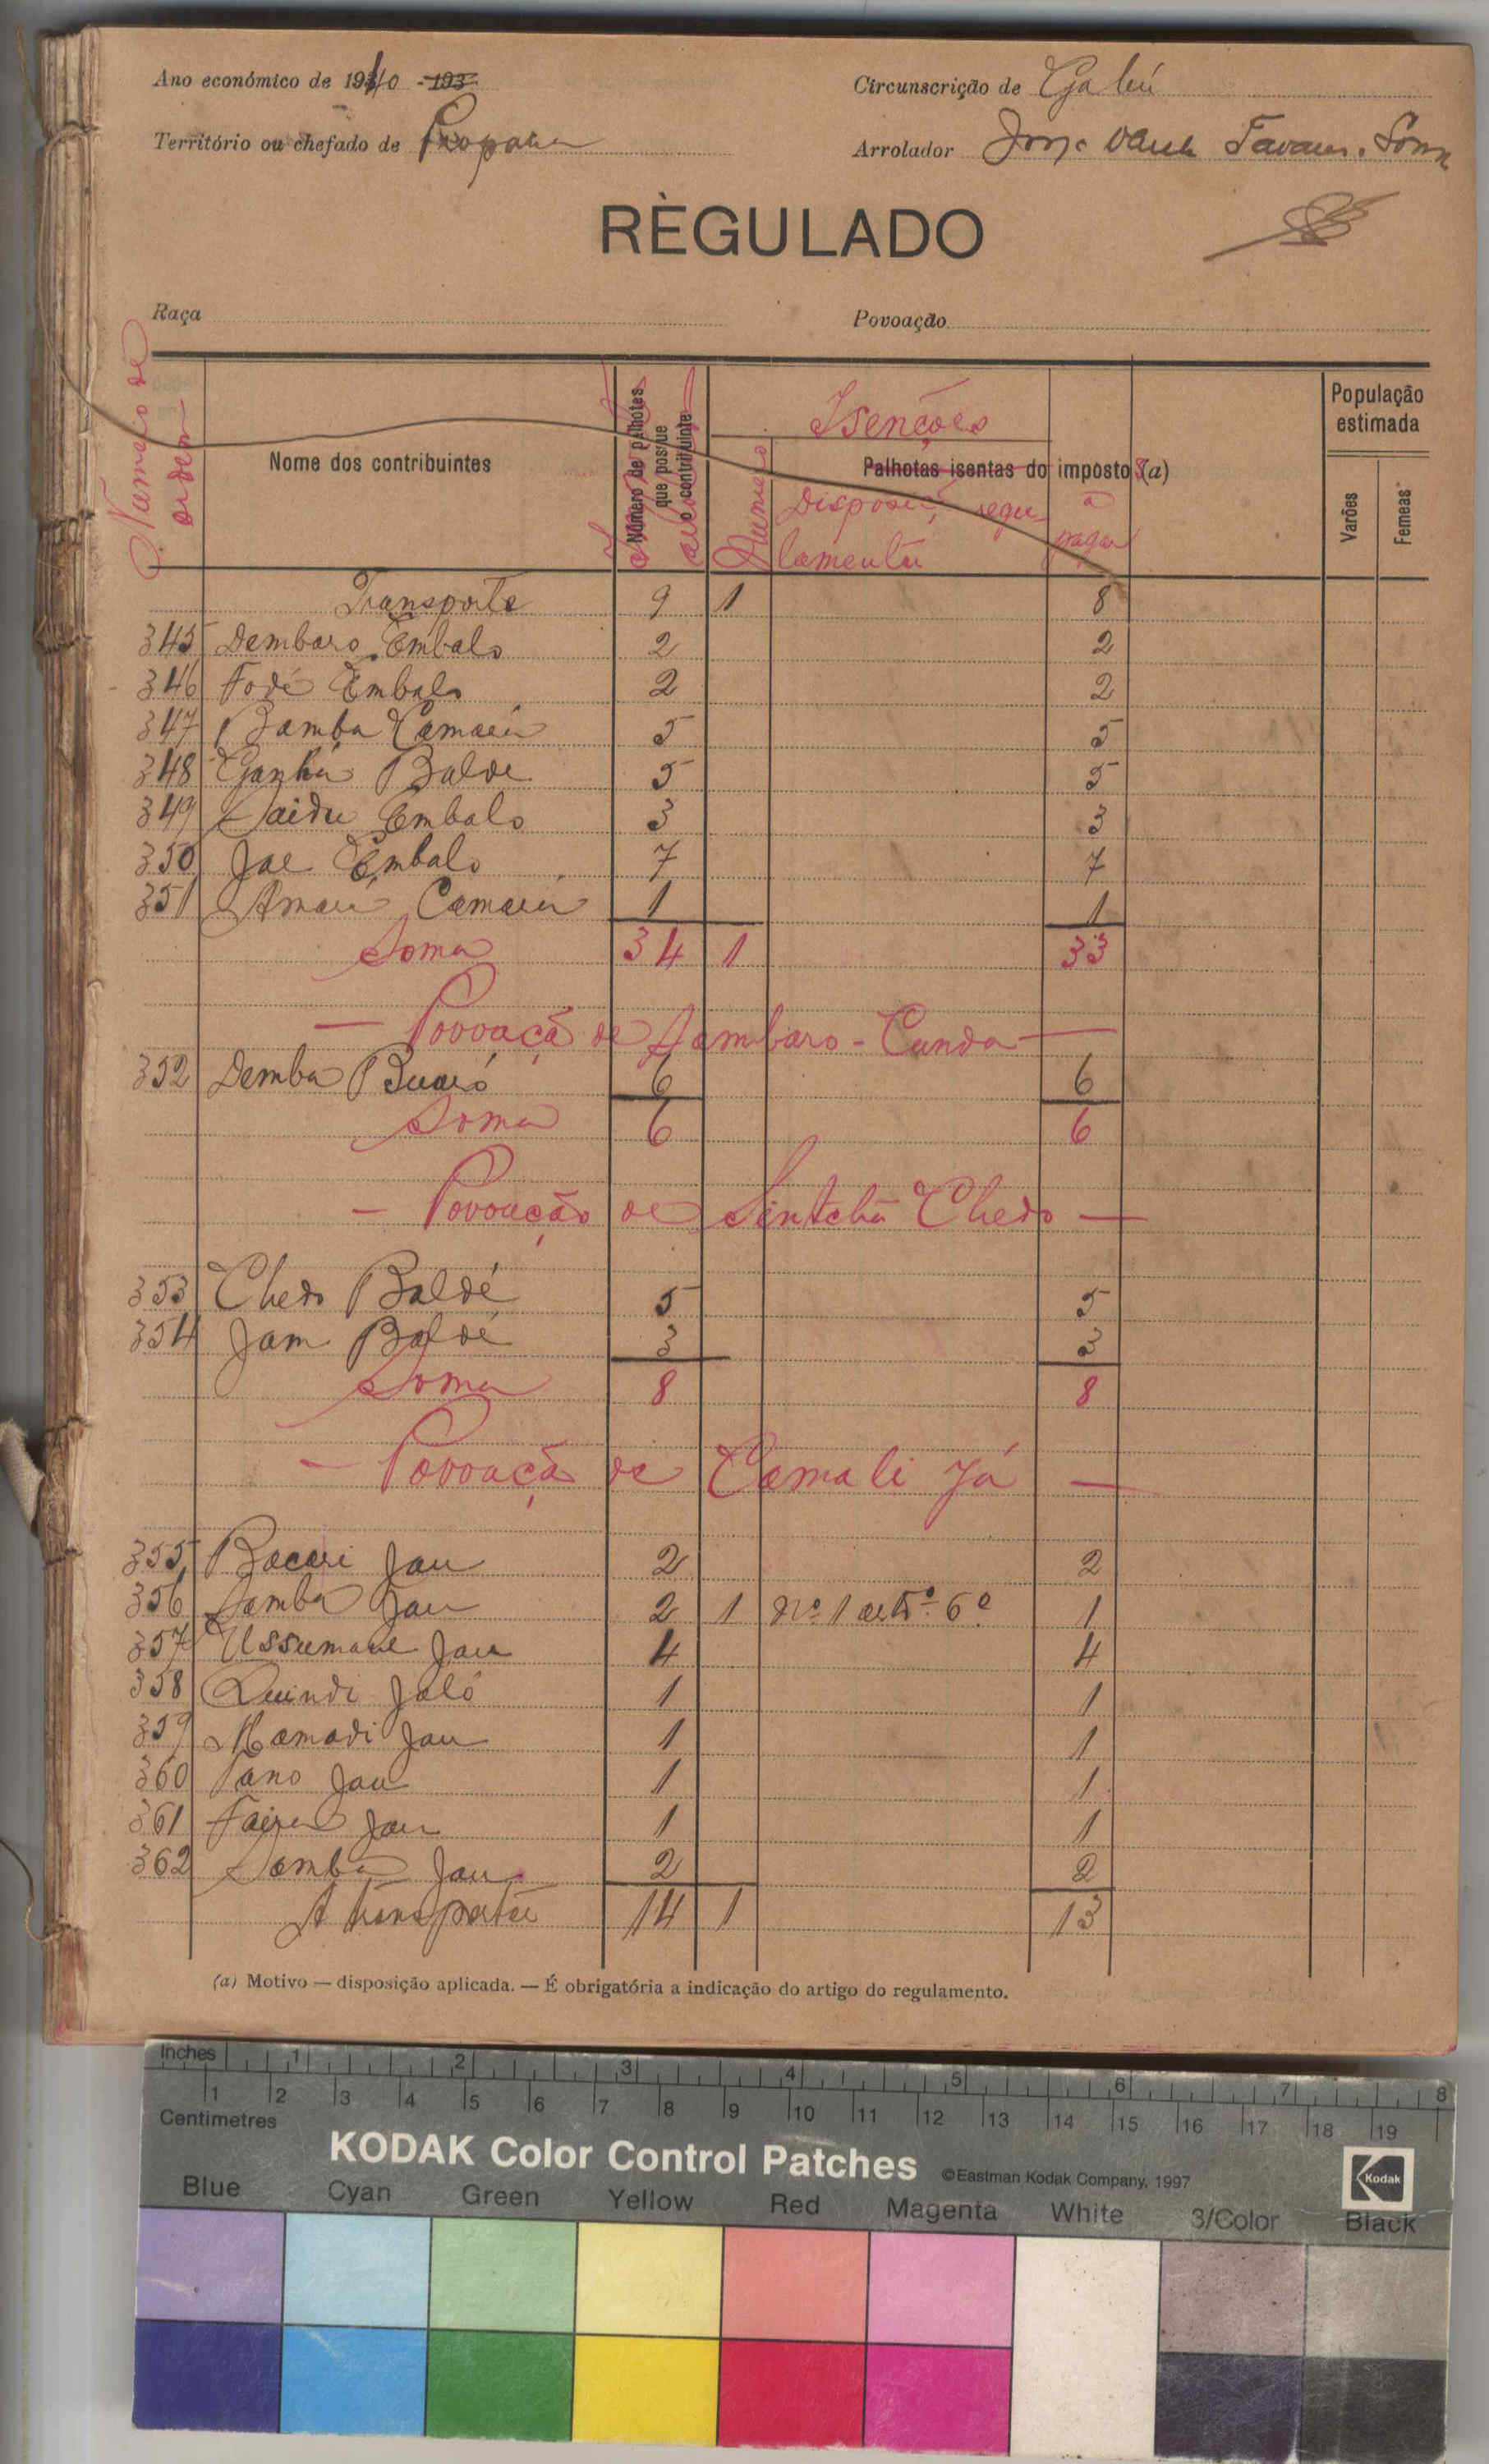 Ano económico de 1940 - 193
Circunscrição de Gabú
Território ou chefado de Propana
Arrolador
RÈGULADO
Raça
Povoação
Numero de ordem
Nome dos contribuintes
Número de palhotes que possue o contribuinte
Isenções
Palhotas isentas do imposto (a)
Numero
Disposiç. regulamentar
a pagar
População estimada
Varões
Femeas
Transporte 9 1 8
345 Dembaro Embalo 2 2
346 Fodé Embalo 2 2
347 Samba Camará 5 5
348 Ganhá Balde 5 5
349 Saidu Embalo 3 3
350 Jae Embalo 7 7
351 Amará Camará 1 1
Soma 34 1 33
— Povoaçã de Sambaro - Cunda —
352 Demba Buaró 6 6
Soma 6 6
— Povoação de Sintchã Chedo —
353 Chedo Baldé 5 5
354 Jam Baldé 3 3
Soma 8 8
— Povoaçã de Camali Já —
355 Bacari Jau 2 2
356 Samba Jau 2 1 nº 1 artº 6º 1
357 Ussumane Jau 4 4
358 Quindi Jaló 1 1
359 Mamadi Jau 1 1
360 Pano Jau 1 1
361 Jau 1 1
362 Samba Jau 2 2
A transportar 14 1 13
(a) Motivo — disposição aplicada. — É obrigatória a indicação do artigo do regulamento.
Inches 1 2 3 4 5 6 7 8
1 2 3 4 5 6 7 8 9 10 11 12 13 14 15 16 17 18 19
Centimetres
KODAK Color Control Patches
©Eastman Kodak Company, 1997
Kodak
Blue Cyan Green Yellow Red Magenta White 3/Color Black